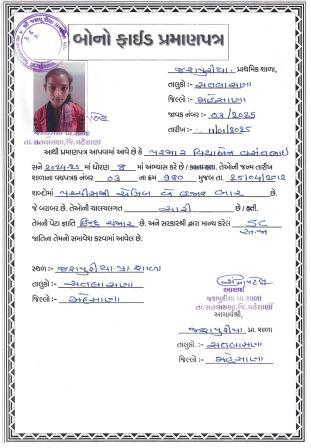 બોનો ફાઈડ પ્રમાણપત્ર
જશપુરીયા પ્રાથમિક શાળા,
તાલુકો :- સતલાસણા
જિલ્લો :- મહેસાણા
જાવક નંબર :- 03/2025
તારીખ :- 11/01/2025
જશપુરીયા પ્રા. શાળા
તા.સતલાસણા,જિ.મહેસાણા
આથી પ્રમાણપત્ર આપવામાં આવે છે કે પરમાર દિવ્યાબેન વસંતભાઈ
સને 2024-25 માં ધોરણ 8 માં અભ્યાસ કરે છે / કરતા હતા. તેઓની જન્મ તારીખ
શાળાના વયપત્રક નંબર 03 ના ક્રમ 980 મુજબ તા. 25/04/2012
શબ્દોમાં પચ્ચીસમી એપ્રિલ બે હજાર બાર
છે જે બરાબર છે. તેઓની ચાલચલગત સારી છે / હતી.
તેમની પેટા જ્ઞાતિ હિન્દુ ચમાર છે. અને સરકારશ્રી દ્વારા માન્ય કરેલ SC
અ.જા
જાતિના તેમનો સમાવેશ કરવામાં આવેલ છે.
સ્થળ :- જશપુરીયા પ્રા. શાળા
તાલુકો :- સતલાસણા
જિલ્લો :- મહેસાણા
આચાર્ય
જશપુરીયા પ્રા. શાળા
તા.સતલાસણા,જિ.મહેસાણા
આચાર્યશ્રી,
જશપુરીયા પ્રા. શાળા
તાલુકો :- સતલાસણા
જિલ્લો :- મહેસાણા